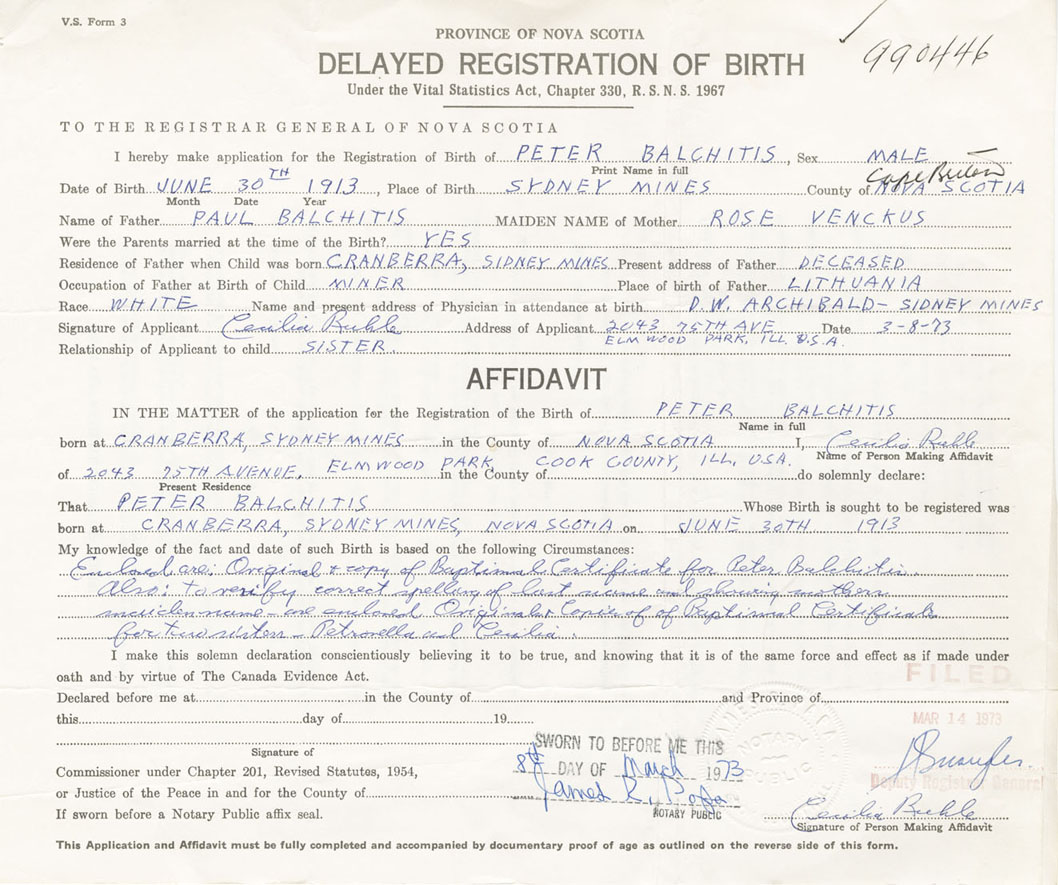 V.S. Form 3
990446
PROVINCE OF NOVA SCOTIA
DELAYED REGISTRATION OF BIRTH
Under the Vital Statistics Act, Chapter 330, R.S.N.S. 1967
TO THE REGISTRAR GENERAL OF NOVA SCOTIA
I hereby make application for the Registration of Birth of PETER BALCHITIS, Sex MALE
Print Name in full
Cape Breton
Date of Birth JUNE 30TH 1913, Place of Birth SYDNEY MINES County of NOVA SCOTIA
Month Date Year
Name of Father PAUL BALCHITIS MAIDEN NAME of Mother ROSE VENCKUS
Were the Parents married at the time of the Birth? YES
Residence of Father when Child was born CRANBERRA, SIDNEY MINES Present address of Father DECEASED
Occupation of Father at Birth of Child MINER Place of birth of Father LITHUANIA
Race WHITE Name and present address of Physician in attendance at birth D.W. ARCHIBALD - SIDNEY MINES
Signature of Applicant Cecilia Ruhle Address of Applicant 2043 75TH AVE Date 3-8-73
ELMWOOD PARK, ILL. U.S.A.
Relationship of Applicant to child SISTER
AFFIDAVIT
IN THE MATTER of the application for the Registration of the Birth of PETER BALCHITIS
Name in full
born at CRANBERRA, SYDNEY MINES in the County of NOVA SCOTIA I, Cecilia Ruhle
Name of Person Making Affidavit
of 2043 75TH AVENUE, ELMWOOD PARK in the County of COOK COUNTY, ILL. USA. do solemnly declare:
Present Residence
That PETER BALCHITIS Whose Birth is sought to be registered was
born at CRANBERRA, SYDNEY MINES, NOVA SCOTIA on JUNE 30TH 1913
My knowledge of the fact and date of such Birth is based on the following Circumstances:
Enclosed are: Original & copy of Baptismal Certificate for Peter Balchitis.
Also: to verify correct spelling of last name and showing mothers
maiden name - are enclosed Original & Copies of of Baptismal Certificate
for two sisters - Petronella and Cecilia.
I make this solemn declaration conscientiously believing it to be true, and knowing that it is of the same force and effect as if made under
oath and by virtue of The Canada Evidence Act.
FILED
Declared before me at in the County of and Province of
this day of 19
MAR 14 1973
Signature of
SWORN TO BEFORE ME THIS
8th DAY OF March 1973
NOTARY PUBLIC
Commissioner under Chapter 201, Revised Statutes, 1954,
Deputy Registrar General
or Justice of the Peace in and for the County of
James R.
NOTARY PUBLIC
Cecilia Ruhle
If sworn before a Notary Public affix seal.
Signature of Person Making Affidavit
This Application and Affidavit must be fully completed and accompanied by documentary proof of age as outlined on the reverse side of this form.